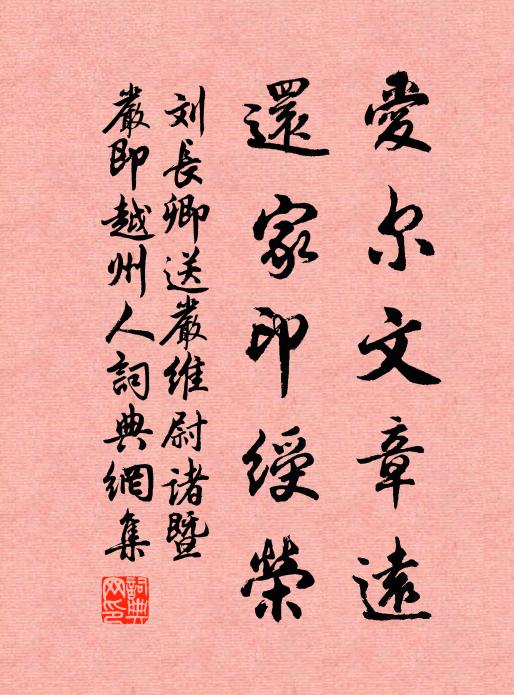 愛尔文章遠
還家印綬榮
刘長卿送嚴維尉诸暨
嚴即越州人詞典網集